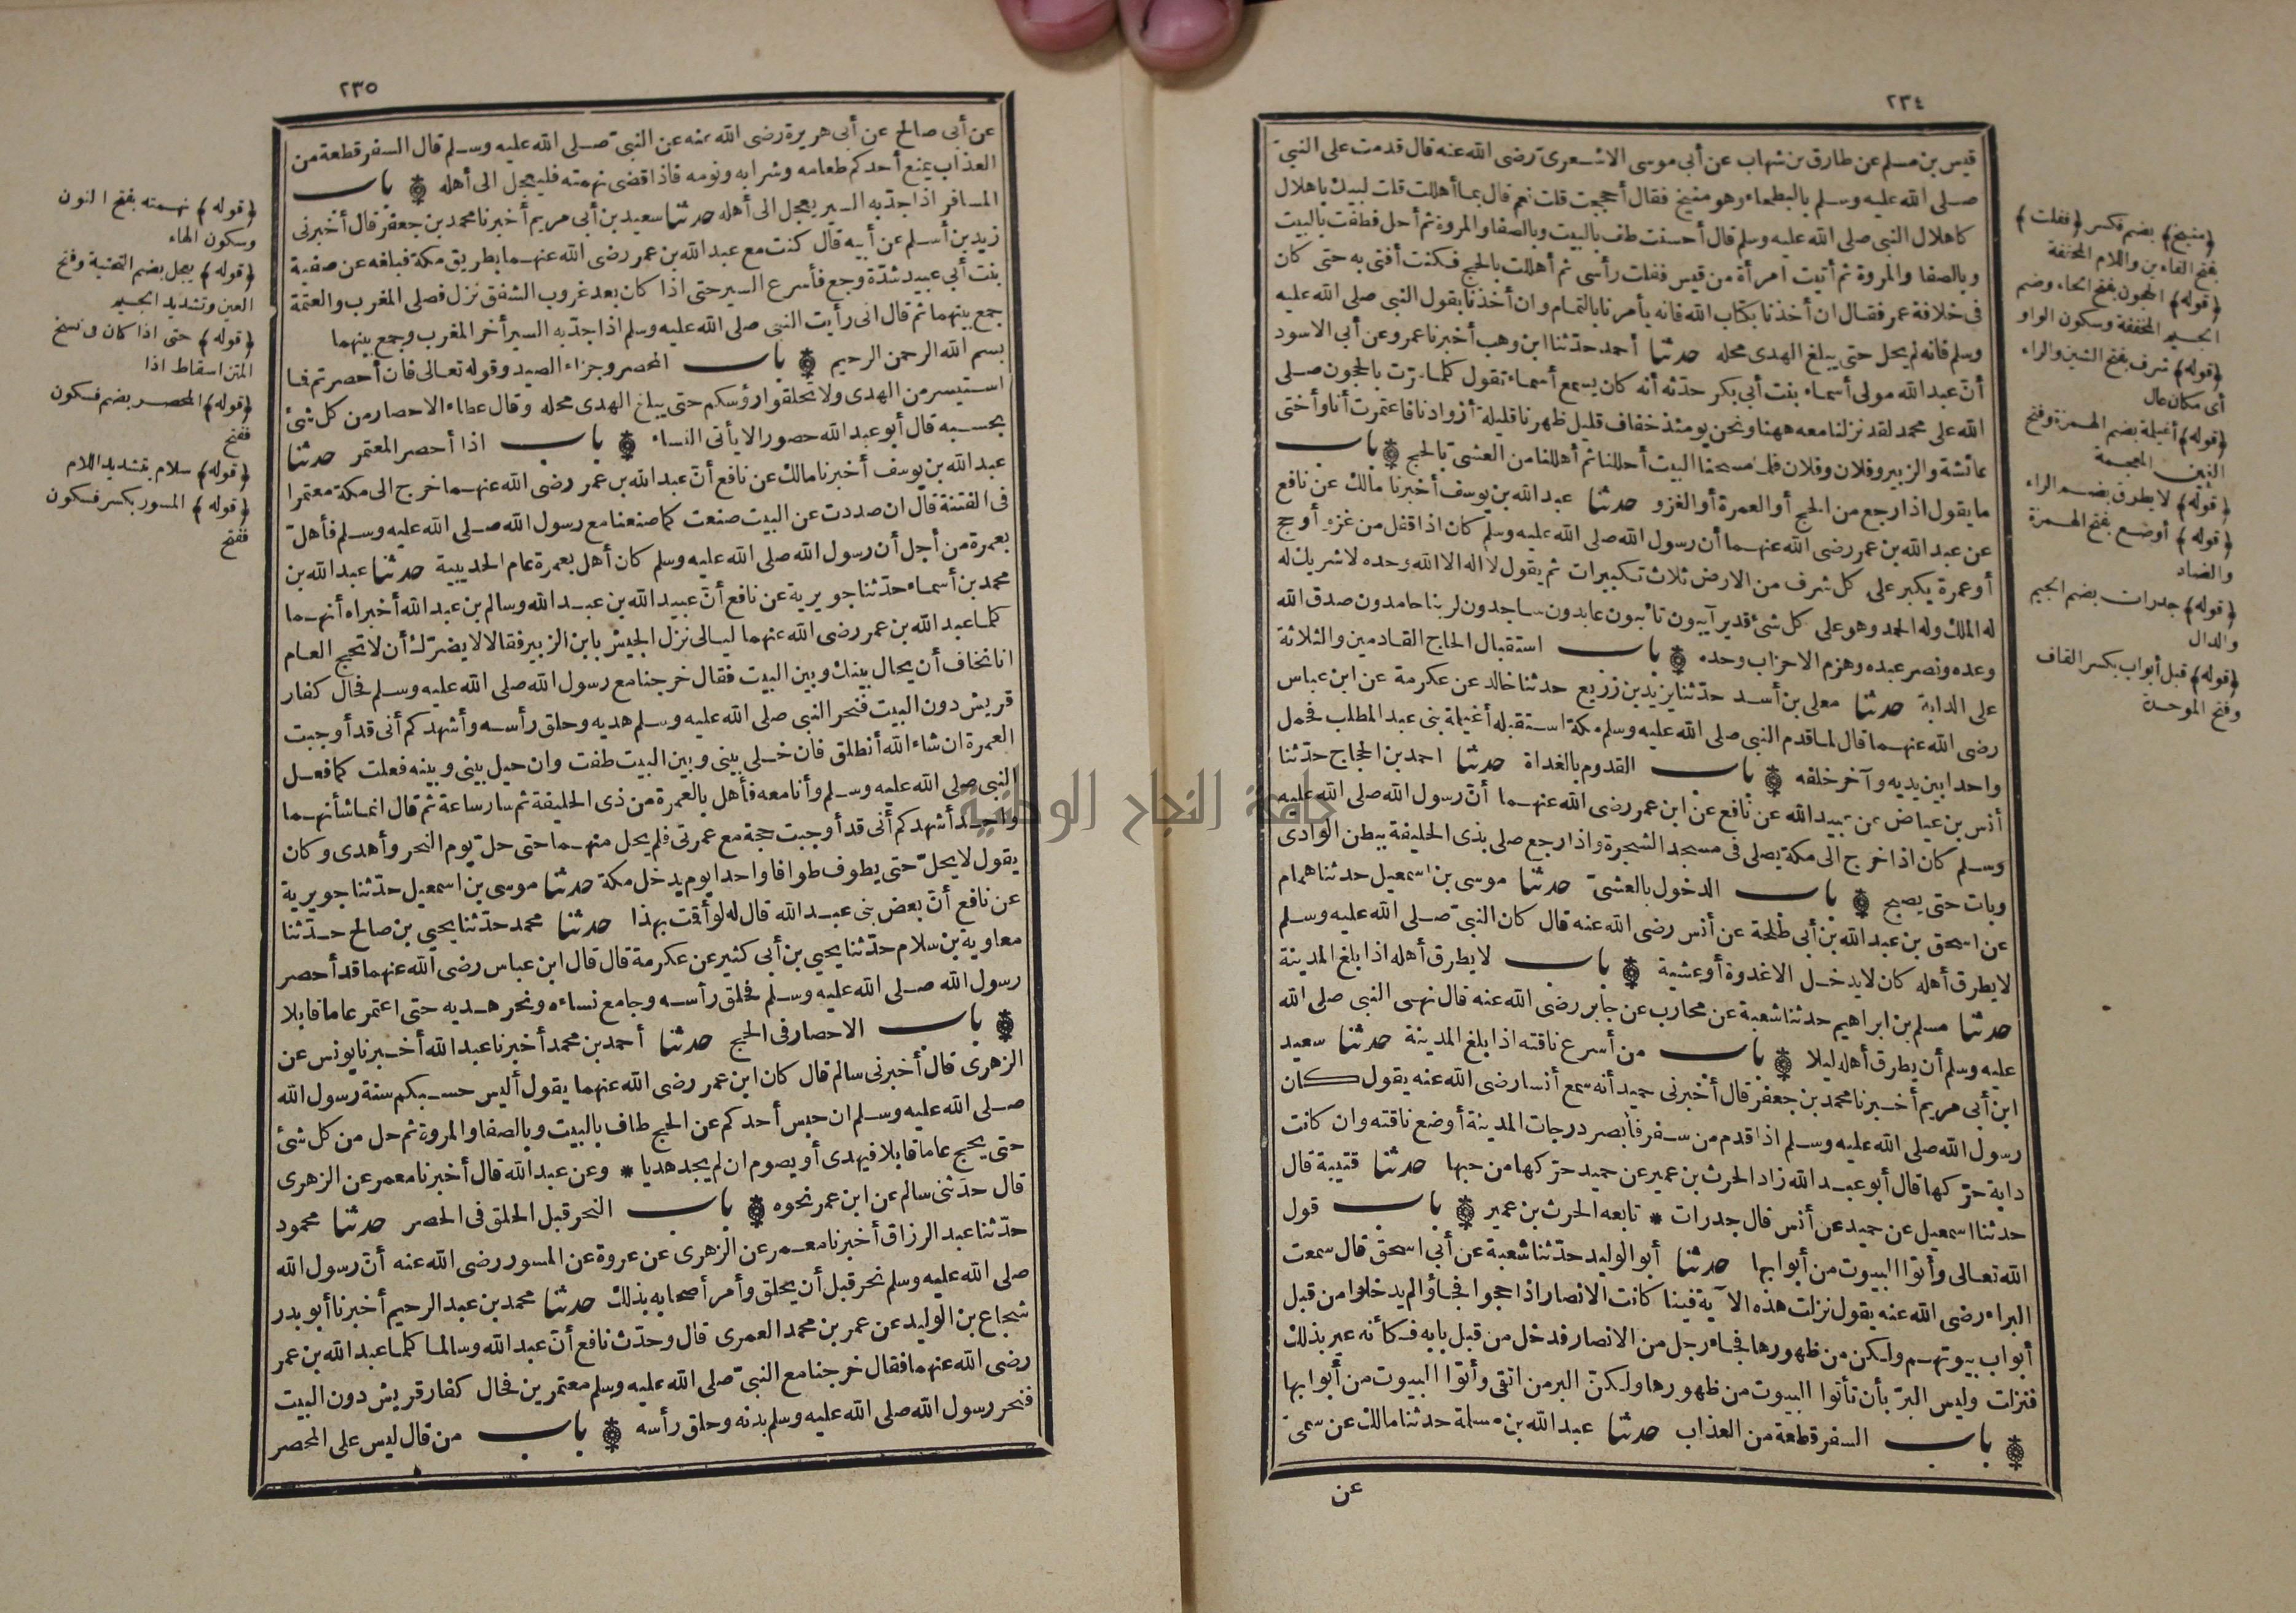 ٢٣٤
قيس بن مسلم عن طارق بن شهاب عن أبى موسى الاشعرىّ رضى الله عنه قال قدمت على النبىّ
صلى الله عليه وسلم بالبطحاء وهو منيخ فقال أحججت قلت نعم قال بما أهللت قلت لبيك باهلال
كاهلال النبى صلى الله عليه وسلم قال أحسنت طف بالبيت وبالصفا والمروة ثم أحل فطفت بالبيت
وبالصفا والمروة ثم أتيت امرأة من قيس ففلت رأسى ثم أهللت بالحج فكنت أفتى به حتى كان
فى خلافة عمر فقال ان أخذنا بكتاب الله فانه يأمرنا بالتمام وان أخذنا بقول النبى صلى الله عليه
وسلم فانه لم يحل حتى يبلغ الهدى محله حدثنا أحمد حدّثنا ابن وهب أخبرنا عمرو عن أبى الاسود
أنّ عبد الله مولى أسماء بنت أبى بكر حدّثه أنه كان يسمع أسماء تقول كلما مرّت بالحجون صلى
الله على محمد لقد نزلنا معه ههنا ونحن يومئذ خفاف قليل ظهرنا قليلة أزوادنا فاعتمرت أنا وأختى
عائشة والزبير وفلان وفلان فلما مسحنا البيت أحللنا ثم أهللنا من العشى بالحج باب
ما يقول اذا رجع من الحج أو العمرة أو الغزو حدثنا عبد الله بن يوسف أخبرنا مالك عن نافع
عن عبد الله بن عمر رضى الله عنهما أن رسول الله صلى الله عليه وسلم كان اذا قفل من غزو أو حج
أو عمرة يكبر على كل شرف من الارض ثلاث تكبيرات ثم يقول لا اله الا الله وحده لا شريك له
له الملك وله الحمد وهو على كل شئ قدير آيبون تائبون عابدون ساجدون لربنا حامدون صدق الله
وعده ونصر عبده وهزم الاحزاب وحده باب استقبال الحاج القادمين والثلاثة
على الدابة حدثنا معلى بن أسد حدّثنا يزيد بن زريع حدثنا خالد عن عكرمة عن ابن عباس
رضى الله عنهما قال لما قدم النبى صلى الله عليه وسلم مكة استقبله أغيلمة بنى عبد المطلب فحمل
واحدا بين يديه وآخر خلفه باب القدوم بالغداة حدثنا احمد بن الحجاج حدّثنا
أنس بن عياض عن عبيد الله عن نافع عن ابن عمر رضى الله عنهما أنّ رسول الله صلى الله عليه
وسلم كان اذا خرج الى مكة يصلى فى مسجد الشجرة واذا رجع صلى بذى الحليفة ببطن الوادى
وبات حتى يصبح باب الدخول بالعشىّ حدثنا موسى بن اسمعيل حدثنا همام
عن اسحق بن عبد الله بن أبى طلحة عن أنس رضى الله عنه قال كان النبىّ صلى الله عليه وسلم
لا يطرق أهله كان لا يدخل الا غدوة أو عشية باب لا يطرق أهله اذا بلغ المدينة
حدثنا مسلم بن ابراهيم حدثنا شعبة عن محارب عن جابر رضى الله عنه قال نهى النبى صلى الله
عليه وسلم أن يطرق أهله ليلا باب من أسرع ناقته اذا بلغ المدينة حدثنا سعيد
ابن أبى مريم أخبرنا محمد بن جعفر قال أخبرنى حميد أنه سمع أنسا رضى الله عنه يقول كان
رسول الله صلى الله عليه وسلم اذا قدم من سفر فأبصر درجات المدينة أوضع ناقته وان كانت
دابة حرّكها قال أبو عبد الله زاد الحرث بن عمير عن حميد حرّكها من حبها حدثنا قتيبة قال
حدثنا اسمعيل عن حميد عن أنس قال جدرات * تابعه الحرث بن عمير باب قول
الله تعالى وأتوا البيوت من أبوابها حدثنا أبو الوليد حدّثنا شعبة عن أبى اسحق قال سمعت
البراء رضى الله عنه يقول نزلت هذه الآية فينا كانت الانصار اذا حجوا فجاؤا لم يدخلوا من قبل
أبواب بيوتهم ولكن من ظهورها فجاء رجل من الانصار فدخل من قبل بابه فكأنه عير بذلك
فنزلت وليس البرّ بأن تأتوا البيوت من ظهورها ولكنّ البر من اتقى وأتوا البيوت من أبوابها
باب السفر قطعة من العذاب حدثنا عبد الله بن مسلمة حدثنا مالك عن سمىّ
عن
(منيخ) بضم فكسر (ففلت)
بفتح الفاءين واللام المخففة
(قوله) الحجون بفتح الحاء وضم
الجيم المخففة وسكون الواو
(قوله) شرف بفتح الشين والراء
أى مكان عال
(قوله) أغيلمة بضم الهمزة وفتح
الغين المعجمة
(قوله) لا يطرق بضم الراء
(قوله) أوضع بفتح الهمزة
والضاد
(قوله) جدرات بضم الجيم
والدال
(قوله) قبل أبواب بكسر القاف
وفتح الموحدة
٢٣٥
عن أبى صالح عن أبى هريرة رضى الله عنه عن النبىّ صلى الله عليه وسلم قال السفر قطعة من
العذاب يمنع أحدكم طعامه وشرابه ونومه فاذا قضى نهمته فليعجل الى أهله باب
المسافر اذا جدّ به السير يعجل الى أهله حدثنا سعيد بن أبى مريم أخبرنا محمد بن جعفر قال أخبرنى
زيد بن أسلم عن أبيه قال كنت مع عبد الله بن عمر رضى الله عنهما بطريق مكة فبلغه عن صفية
بنت أبى عبيد شدّة وجع فأسرع السير حتى اذا كان بعد غروب الشفق نزل فصلى المغرب والعتمة
جمع بينهما ثم قال انى رأيت النبى صلى الله عليه وسلم اذا جدّ به السير أخر المغرب وجمع بينهما
بسم الله الرحمن الرحيم باب المحصر وجزاء الصيد وقوله تعالى فان أحصرتم فما
استيسر من الهدى ولا تحلقوا رؤسكم حتى يبلغ الهدى محله وقال عطاء الاحصار من كل شئ
يحسبه قال أبو عبد الله حصورا لا يأتى النساء باب اذا أحصر المعتمر حدثنا
عبد الله بن يوسف أخبرنا مالك عن نافع أنّ عبد الله بن عمر رضى الله عنهما خرج الى مكة معتمرا
فى الفتنة قال ان صددت عن البيت صنعت كما صنعنا مع رسول الله صلى الله عليه وسلم فأهلّ
بعمرة من أجل أن رسول الله صلى الله عليه وسلم كان أهل بعمرة عام الحديبية حدثنا عبد الله بن
محمد بن أسماء حدّثنا جويرية عن نافع أنّ عبيد الله بن عبد الله وسالم بن عبد الله أخبراه أنهما
كلما عبد الله بن عمر رضى الله عنهما ليالى نزل الجيش بابن الزبير فقالا لا يضرّك أن لا تحج العام
انا نخاف أن يحال بينك وبين البيت فقال خرجنا مع رسول الله صلى الله عليه وسلم فحال كفار
قريش دون البيت فنحر النبى صلى الله عليه وسلم هديه وحلق رأسه وأشهدكم أنى قد أوجبت
العمرة ان شاء الله أنطلق فان خلى بينى وبين البيت طفت وان حيل بينى وبينه فعلت كما فعل
النبى صلى الله عليه وسلم وأنا معه فأهل بالعمرة من ذى الحليفة ثم سار ساعة ثم قال انما شأنهما
واحد أشهدكم أنى قد أوجبت حجة مع عمرتى فلم يحل منهما حتى حلّ يوم النحر وأهدى وكان
يقول لا يحلّ حتى يطوف طوافا واحدا يوم يدخل مكة حدثنا موسى بن اسمعيل حدّثنا جويرية
عن نافع أنّ بعض بنى عبد الله قال له لو أقمت بهذا حدثنا محمد حدّثنا يحيى بن صالح حدّثنا
معاوية بن سلام حدّثنا يحيى بن أبى كثير عن عكرمة قال قال ابن عباس رضى الله عنهما قد أحصر
رسول الله صلى الله عليه وسلم فحلق رأسه وجامع نساءه ونحر هديه حتى اعتمر عاما قابلا
باب الاحصار فى الحج حدثنا أحمد بن محمد أخبرنا عبد الله أخبرنا يونس عن
الزهرى قال أخبرنى سالم قال كان ابن عمر رضى الله عنهما يقول أليس حسبكم سنة رسول الله
صلى الله عليه وسلم ان حبس أحدكم عن الحج طاف بالبيت وبالصفا والمروة ثم حل من كل شئ
حتى يحج عاما قابلا فيهدى أو يصوم ان لم يجد هديا * وعن عبد الله قال أخبرنا معمر عن الزهرى
قال حدّثنى سالم عن ابن عمر نحوه باب النحر قبل الحلق فى الحصر حدثنا محمود
حدّثنا عبد الرزاق أخبرنا معمر عن الزهرى عن عروة عن المسور رضى الله عنه أنّ رسول الله
صلى الله عليه وسلم نحر قبل أن يحلق وأمر أصحابه بذلك حدثنا محمد بن عبد الرحيم أخبرنا أبو بدر
شجاع بن الوليد عن عمر بن محمد العمرى قال وحدّث نافع أنّ عبد الله وسالما كلما عبد الله بن عمر
رضى الله عنهما فقال خرجنا مع النبىّ صلى الله عليه وسلم معتمرين فحال كفار قريش دون البيت
فنحر رسول الله صلى الله عليه وسلم بدنه وحلق رأسه باب من قال ليس على المحصر
(قوله) نهمته بفتح النون
وسكون الهاء
(قوله) يعجل بضم التحتية وفتح
العين وتشديد الجيم
(قوله) حتى اذا كان ونسخ
المتن اسقاط اذا
(قوله) المحصر بضم فسكون
ففتح
(قوله) سلام بتشديد اللام
(قوله) المسور بكسر فسكون
ففتح
جامعة النجاح الوطنية